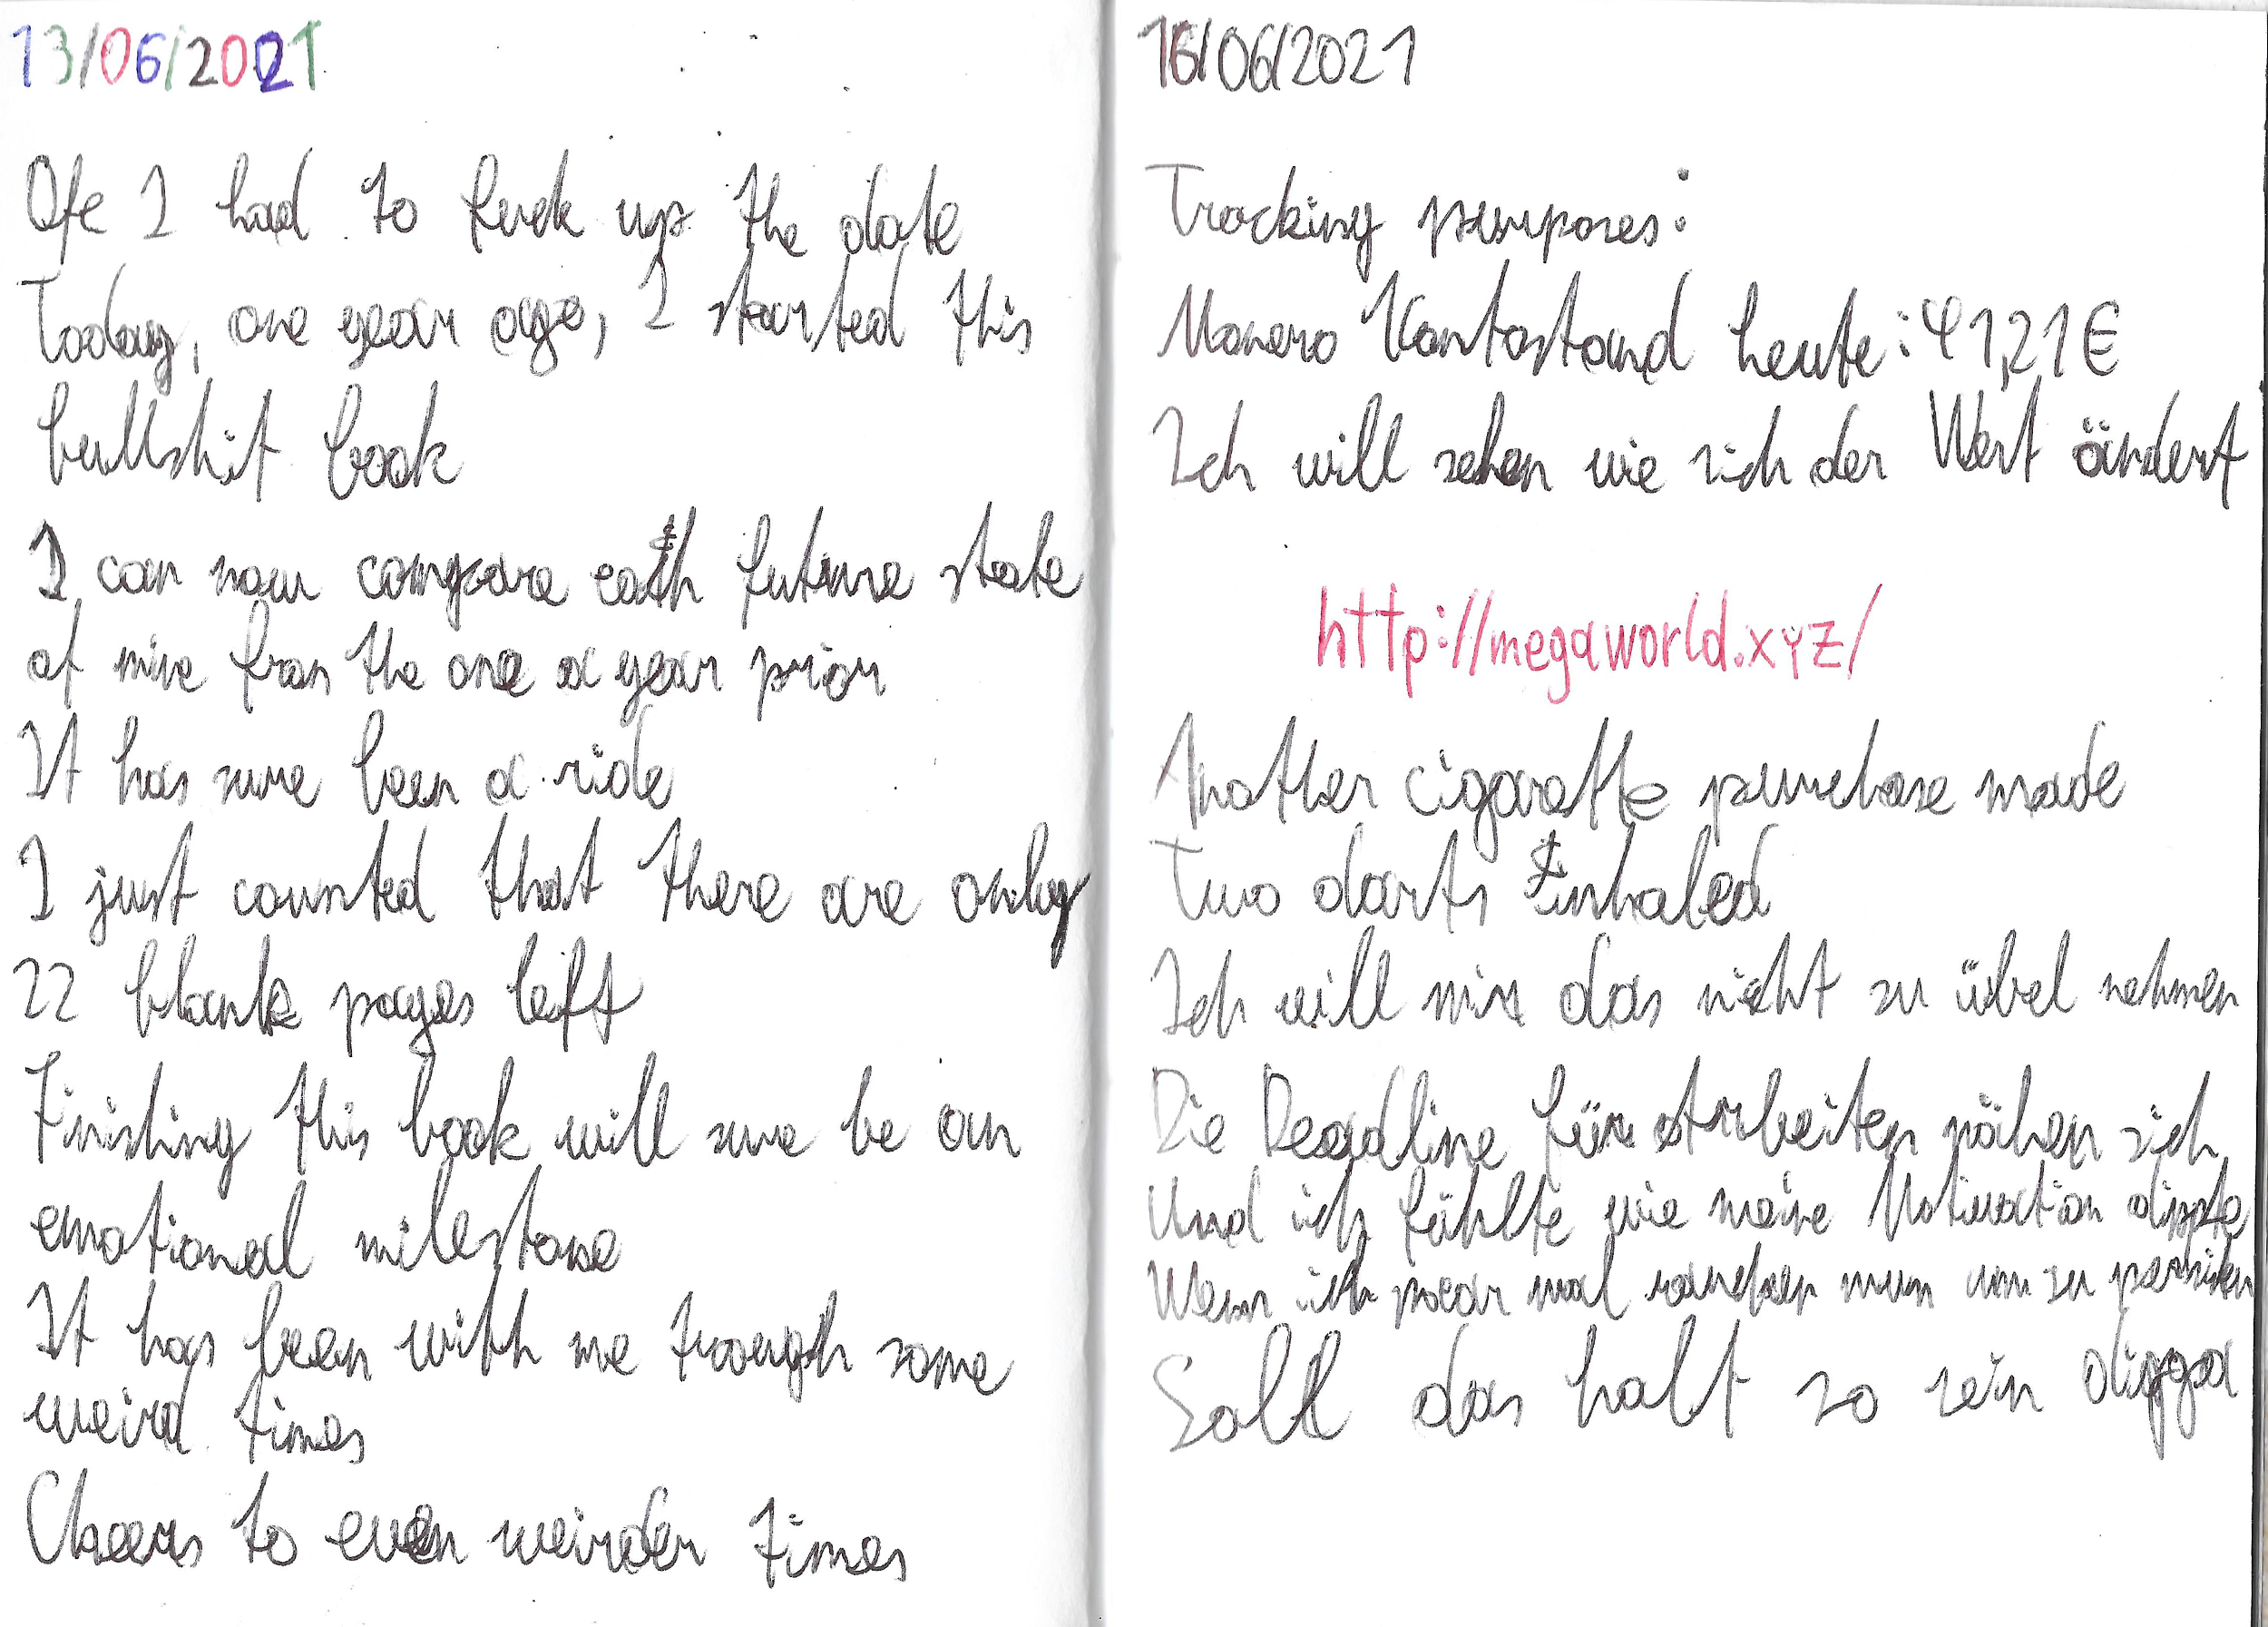 13/06/2021
Ofc I had to fuck up the date
Today, one year ago, I started this
bullshit book
I can now compare each future state
of mine from the one a year prior
It has sure been a ride
I just counted that there are only
22 blank pages left
Finishing this book will sure be an
emotional milestone
It has been with me trough some
weird times
Cheers to even weirder times
16/06/2021
Tracking purposes:
Monero Kontostand heute: 41,21€
Ich will sehen wie sich der Wert ändert
http://megaworld.xyz/
Another cigarette purchase made
Two darts inhaled
Ich will mir das nicht zu übel nehmen
Die Deadline für arbeiten nähen sich
Und ich fühlte wie meine Motivation dippte
Wenn ich paar mal rauchen muss um zu
Soll das halt so sein digga